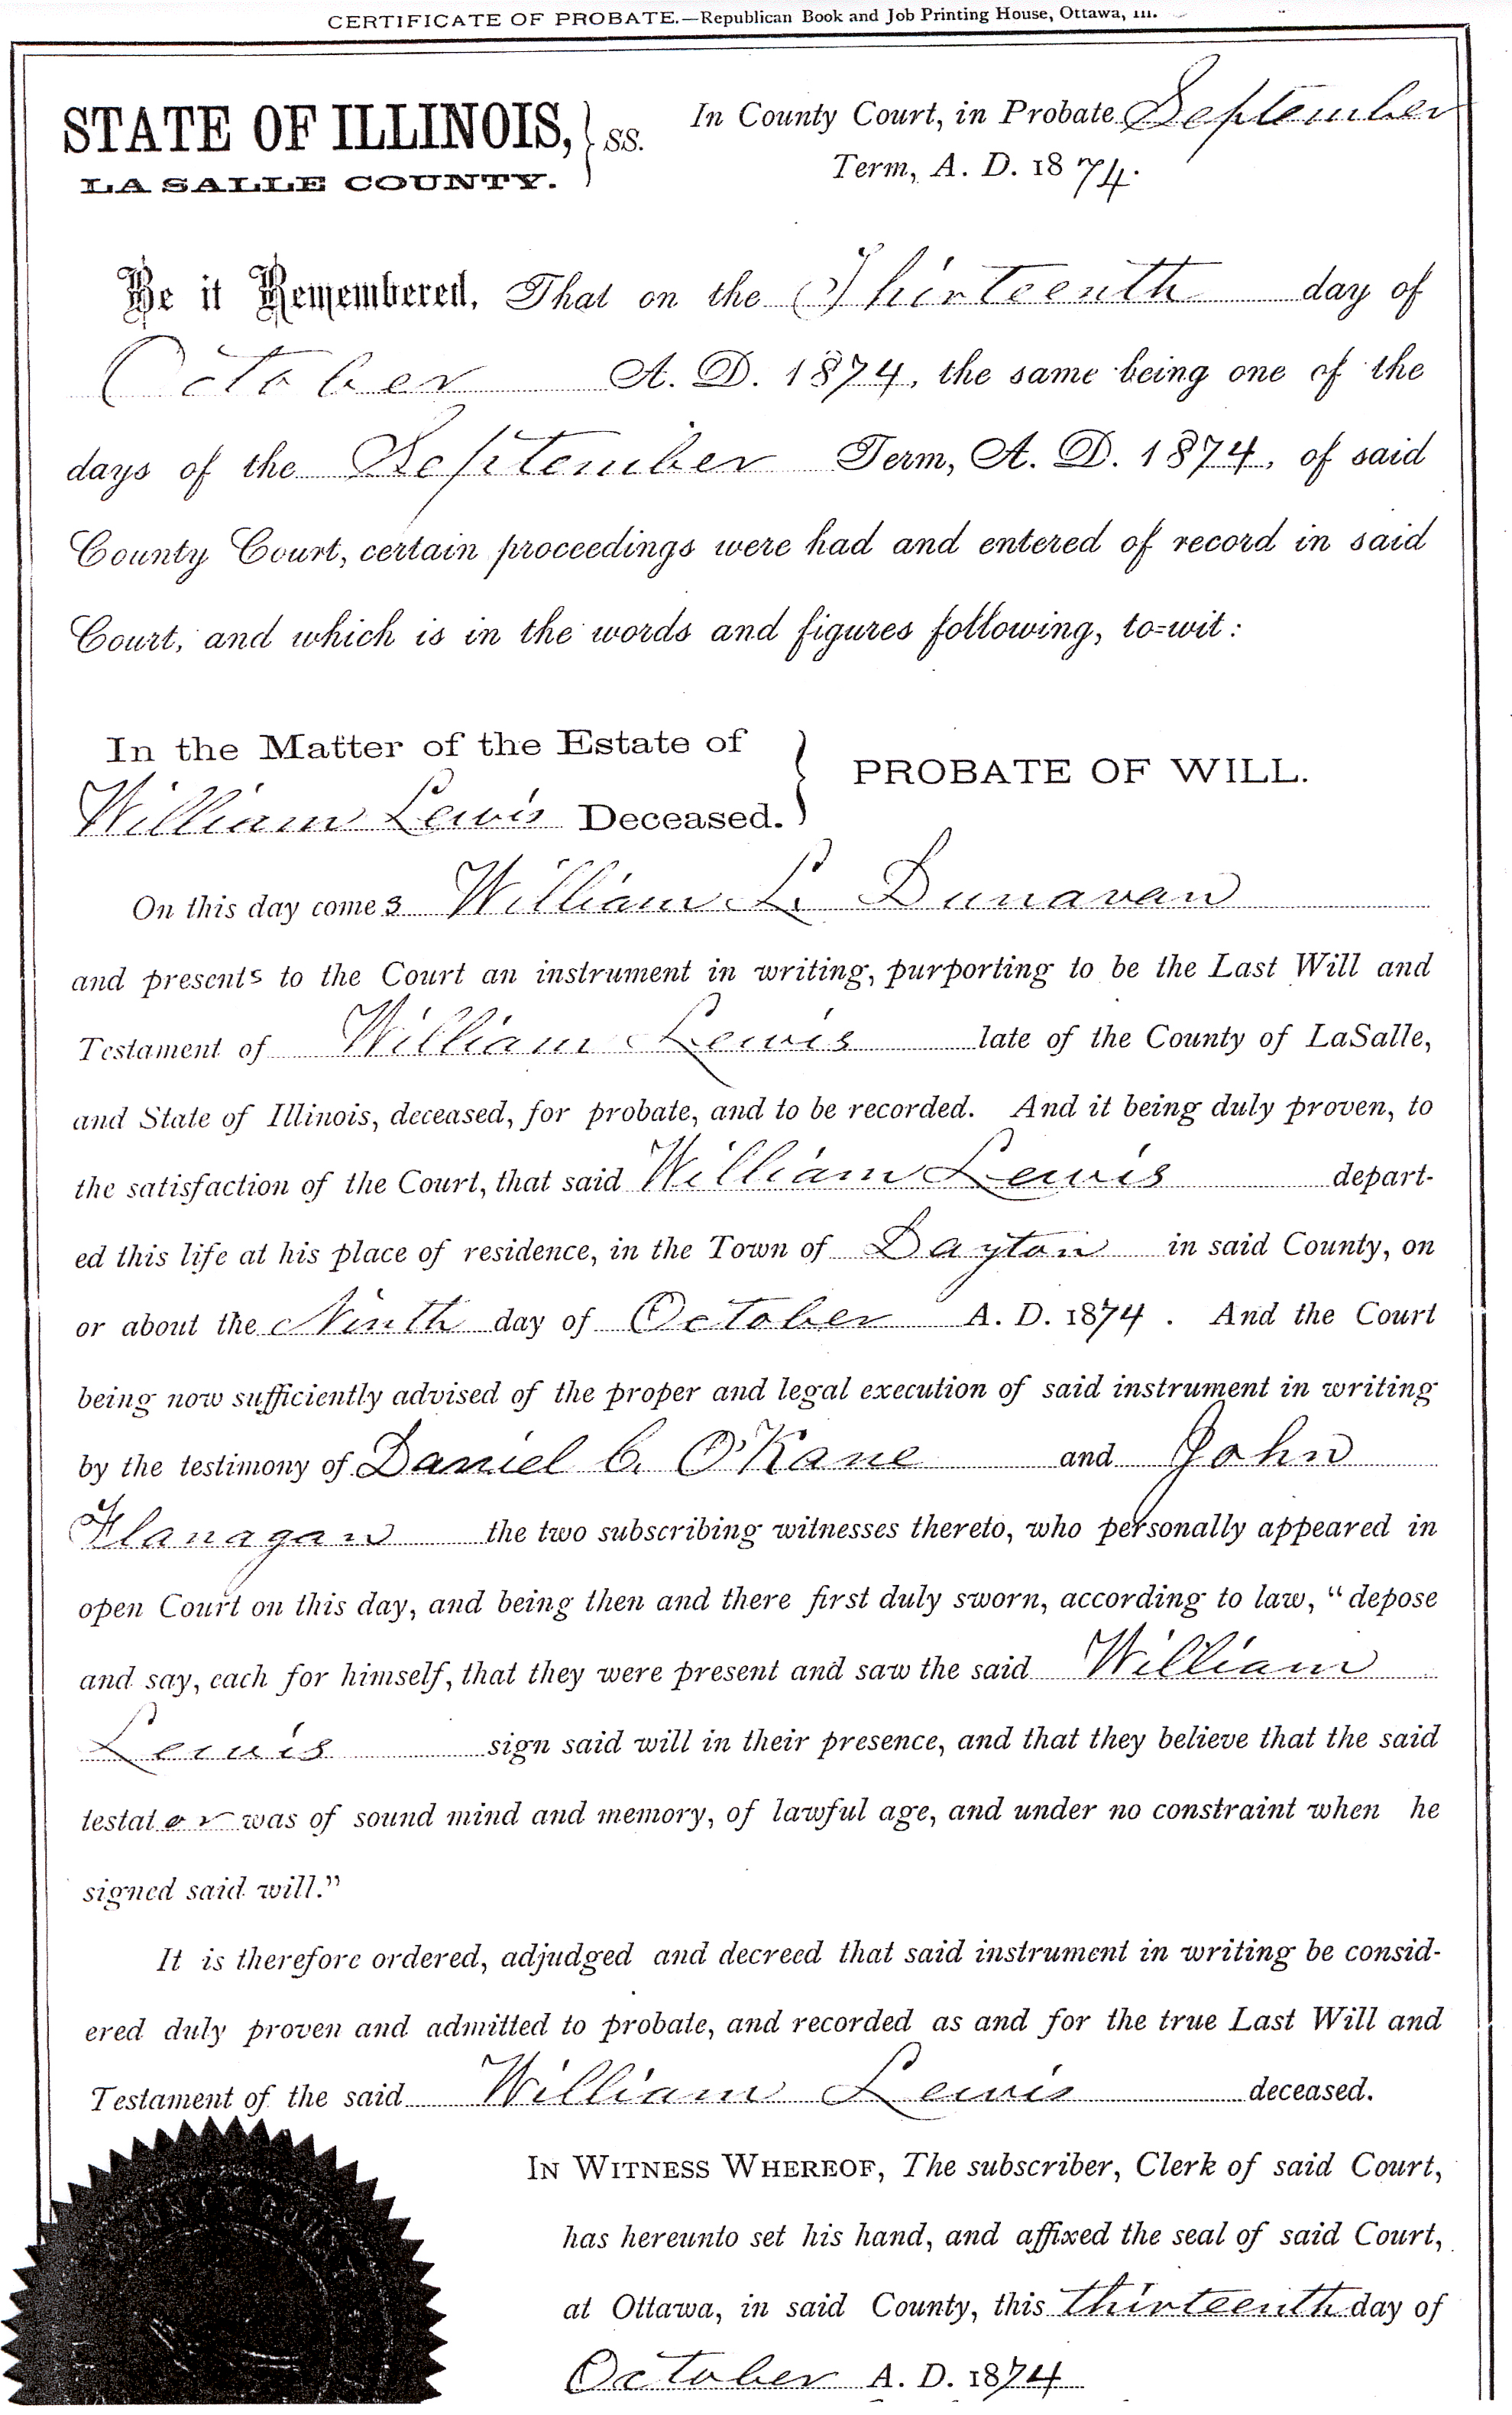 CERTIFICATE OF PROBATE.—Republican Book and Job Printing House, Ottawa, Ill.
STATE OF ILLINOIS, } ss.
LA SALLE COUNTY.
In County Court, in Probate September
Term, A. D. 1874.
Be it Remembered, That on the Thirteenth day of
October A. D. 1874, the same being one of the
days of the September Term, A. D. 1874, of said
County Court, certain proceedings were had and entered of record in said
Court, and which is in the words and figures following, to=wit:
In the Matter of the Estate of
William Lewis Deceased. }
PROBATE OF WILL.
On this day comes William L. Dunavan
and presents to the Court an instrument in writing, purporting to be the Last Will and
Testament of William Lewis late of the County of LaSalle,
and State of Illinois, deceased, for probate, and to be recorded. And it being duly proven, to
the satisfaction of the Court, that said William Lewis depart-
ed this life at his place of residence, in the Town of Dayton in said County, on
or about the Ninth day of October A. D. 1874. And the Court
being now sufficiently advised of the proper and legal execution of said instrument in writing
by the testimony of Daniel C. O'Kane and John
Flanagan the two subscribing witnesses thereto, who personally appeared in
open Court on this day, and being then and there first duly sworn, according to law, "depose
and say, each for himself, that they were present and saw the said William
Lewis sign said will in their presence, and that they believe that the said
testator was of sound mind and memory, of lawful age, and under no constraint when he
signed said will."
It is therefore ordered, adjudged and decreed that said instrument in writing be consid-
ered duly proven and admitted to probate, and recorded as and for the true Last Will and
Testament of the said William Lewis deceased.
IN WITNESS WHEREOF, The subscriber, Clerk of said Court,
has hereunto set his hand, and affixed the seal of said Court,
at Ottawa, in said County, this thirteenth day of
October A. D. 1874